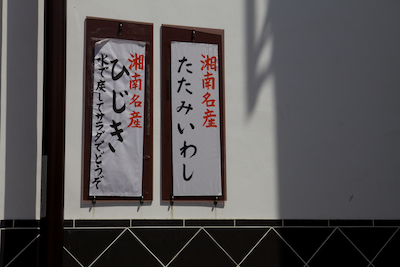 湘南名産
たたみいわし
湘南名産
ひじき
水で戻してサラダでどうぞ